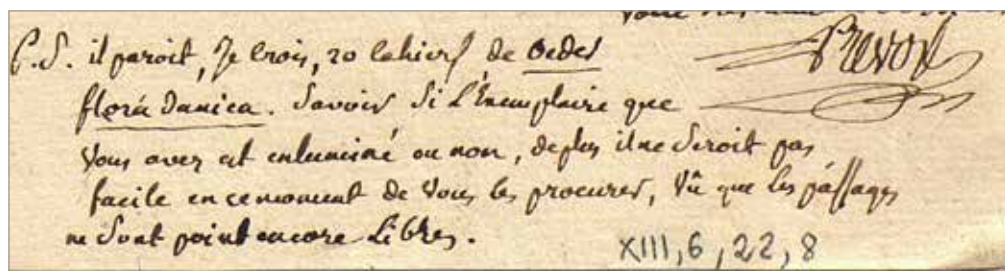 Prevost
P.S. il paroit, Je crois, 20 cahiers de Oeder
flora danica. Savoir Si L'Exemplaire que
Vous avez est enluminé ou non, deplus il ne Seroit pas
facile en ce moment de Vous les procurer, Vû que Les passages
ne Sont point encore Libres.
XIII, 6, 22, 8